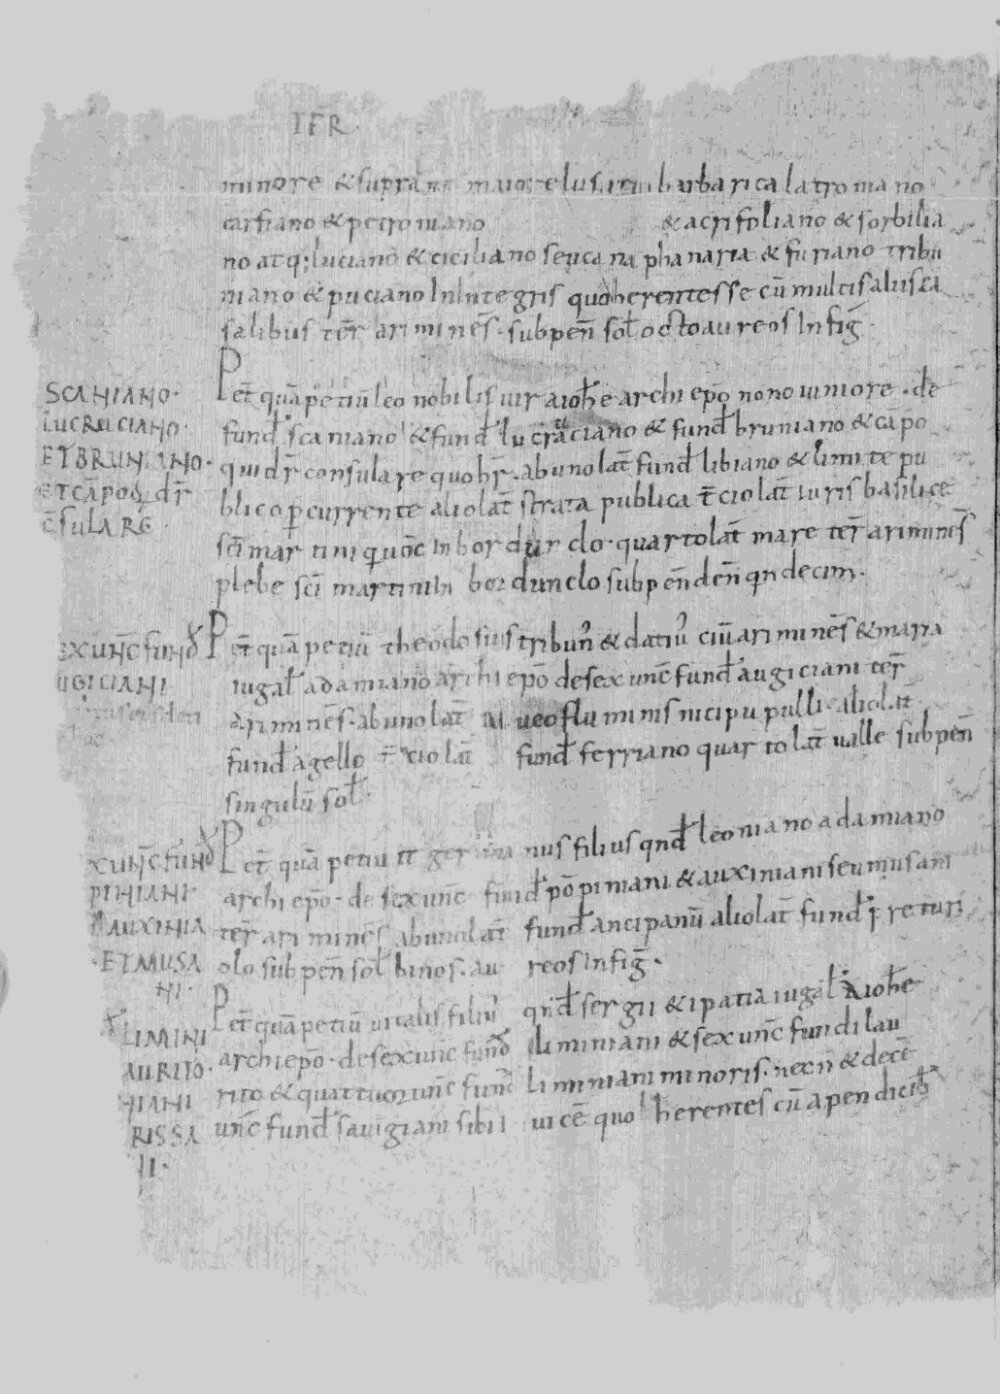 TER
minore & supra maiore barbarica latroniano
carfiano & petroniano & acrifoliano & sorbilia
no atq; luciano & ciciliano seu cana phanaria & furiano tribu
niano & puciano In Integris quoherentes se cū multis aliis ca
salibus ter̄ ariminēs· subpen̄ sol̄ octo aureos Infiḡ·
SCANIANO·
LUCRUCIANO·
ET BRUNIANO·
ET CĀPO q̄ dr̄
C̄SULARE
Pet̄ quā petiū leo nobilis uir a ioh̄e archiep̄o nono iuniore · de
fund̄ scaniano & fund̄ lucruciano & fund̄ bruniano & cāpo
qui dr̄ consulare quohr̄· ab uno lat̄ fund̄ libiano & limite pu
blico p̄currente alio lat̄ strata publica t̄cio lat̄ iuris basilice
sc̄i martini qui uōc In bordunclo· quarto lat̄ mare ter̄ ariminēs
plebe sc̄i martini In bordunclo subpen̄ den̄ qndecim·
EX UNC̄ FUND̄
UGICIANI
Pet̄ quā petiū theodosius tribun̄ & datiū ciū ariminēs & maria
iugal̄ a damiano archiep̄o de sex unc̄ fund̄ augiciani ter̄
ariminēs· ab uno lat̄ alueo fluminis uicipupulli· alio lat̄
fund̄ agello t̄cio lat̄ fund̄ ferriano quarto lat̄ ualle subpen̄
singulū sol̄·
X UNC̄ FUND̄
PINIANI·
AUXINIA
·ET MUSA
NI·
Pet̄ quā petiū germanus filius qnd̄ leoniano a damiano
archiep̄o· de sex unc̄ fund̄ pōpiniani & auxiniani seu musani
ter̄ ariminēs ab uno lat̄ fund̄ ancipanū alio lat̄ fund̄ returi
olo subpen̄ sol̄ binos· aureos Infiḡ·
LIMINI
AURITO·
NIANI
RISSA
II·
Pet̄ quā petiū uitalis filiū qnd̄ sergii & ipatia iugal̄ a ioh̄e
archiep̄o· de sex unc̄ fund̄ liminiani & sex unc̄ fundi lau
rito & quattuor unc̄ fund̄ liminiani minoris· necn̄ & decē
unc̄ fund̄ sauigiani sibi Inuicē quoherentes cū apendicib̄